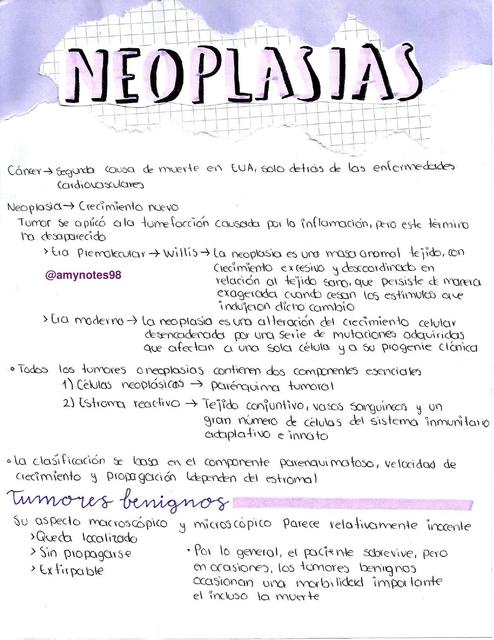 NEOPLASIAS
Cáncer → Segunda causa de muerte en EUA, solo detrás de las enfermedades
cardiovasculares
Neoplasia → Crecimiento nuevo
Tumor se aplicó a la tumefacción causada por la inflamación, pero este término
ha desaparecido
> Era Premolecular → Willis → La neoplasia es una masa anormal tejido, con
crecimiento excesivo y descoordinado en
@amynotes98
relación al tejido sano, que persiste de manera
exagerada cuando cesan los estímulos que
indujeron dicho cambio
> Era moderno → La neoplasia es una alteración del crecimiento celular
desencadenada por una serie de mutaciones adquiridas
que afectan a una sola célula y a su progenie clónica
• Todos los tumores o neoplasias contienen dos componentes esenciales
1) Células neoplásicas → parénquima tumoral
2) Estroma reactivo → Tejido conjuntivo, vasos sanguíneos y un
gran número de células del sistema inmunitario
adaptativo e innato
• La clasificación se basa en el componente parenquimatoso, velocidad de
crecimiento y propagación (dependen del estroma)
Tumores benignos
Su aspecto macroscópico y microscópico parece relativamente inocente
> Queda localizado
> Sin propagarse
> Extirpable
• Por lo general, el paciente sobrevive, pero
en ocasiones, los tumores benignos
ocasionan una morbilidad importante
el incluso la muerte